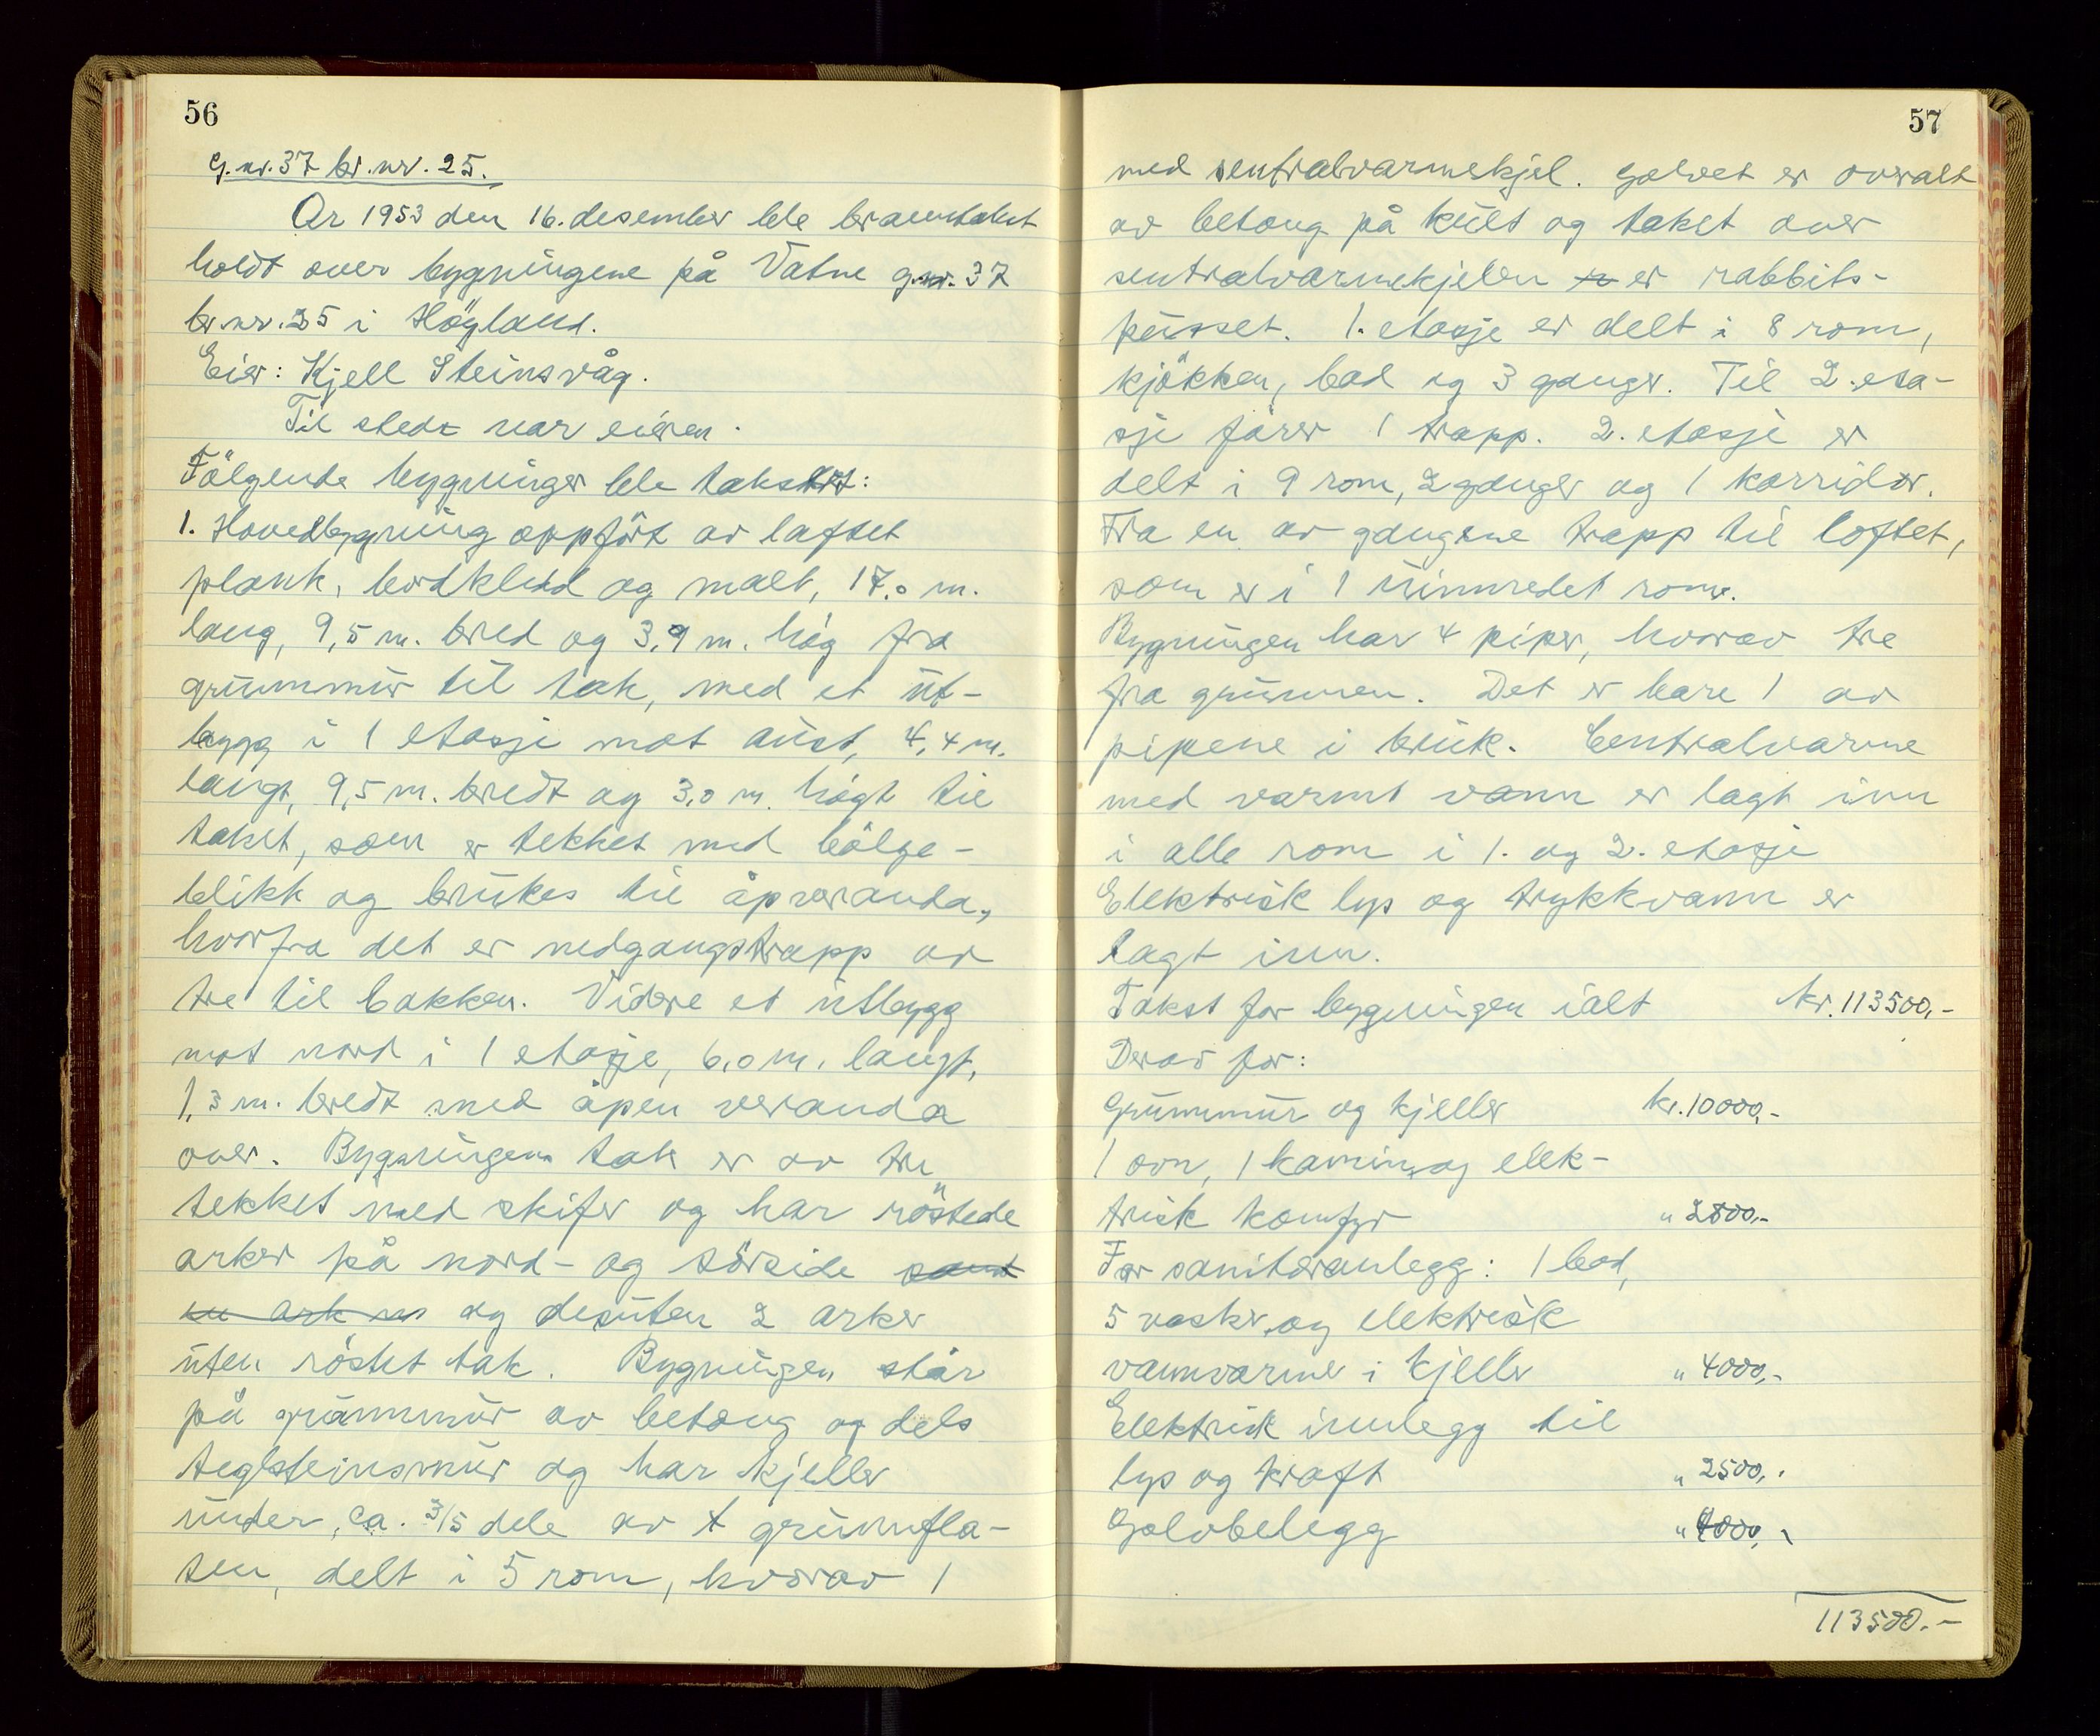 56
G.nr. 37 br.nr. 25.
År 1953 den 16. desember ble branntakst
holdt over bygningene på Vatne g.nr. 37
br.nr. 25 i Högland.
Eier: Kjell Steinsvåg.
Til stede var eieren.
Fölgende bygninger ble takstert:
1. Hovedbygning oppfört av laftet
plank, bordkledd og malt, 17,0 m.
lang, 9,5 m. bred og 3,9 m. høg fra
grunnmur til tak, med et ut-
bygg i 1 etasje mot aust, 4,4 m.
langt, 9,5 m. bredt og 3,0 m. høgt til
taket, som er tekket med bölge-
blikk og brukes til åpveranda,
hvorfra det er nedgangstrapp av
tre til bakken. Videre et utbygg
mot nord i 1 etasje, 6,0 m. langt,
1,3 m. bredt med åpen veranda
over. Bygningens tak er av tre
tekket med skifer og har röstede
arker på nord- og sörside samt
en ark og desuten 2 arker
uten röstet tak. Bygningen står
på grunnmur av betong og dels
teglsteinsmur og har kjeller
under, ca. 3/5 dele av grunnfla-
ten, delt i 5 rom, hvorav 1
57
med sentralvarmekjel. Golvet er overalt
av betong på kult og taket over
sentralvarmekjelen er rabbits-
pusset. 1. etasje er delt i 8 rom,
kjökken, bad og 3 ganger. Til 2. eta-
sje förer 1 trapp. 2. etasje er
delt i 9 rom, 2 ganger og 1 korridor.
Fra en av gangene trapp til loftet,
som er i 1 uinnredet rom.
Bygningen har 4 piper, hvorav tre
fra grunnen. Det er bare 1 av
pipene i bruk. Centralvarme
med varmt vann er lagt inn
i alle rom i 1. og 2. etasje
Elektrisk lys og trykkvann er
lagt inn.
Takst for bygningen ialt kr. 113500,-
Derav for:
Grunnmur og kjeller kr. 10000,-
1 ovn, 1 kamin og elek-
trisk komfyr " 2800,-
For sanitæranlegg: 1 bad,
5 vasker og elektrisk
vannvarmer i kjeller " 4000,-
Elektrisk innlegg til
lys og kraft " 2500,-
Golvbelegg " 4000,-
113500.-